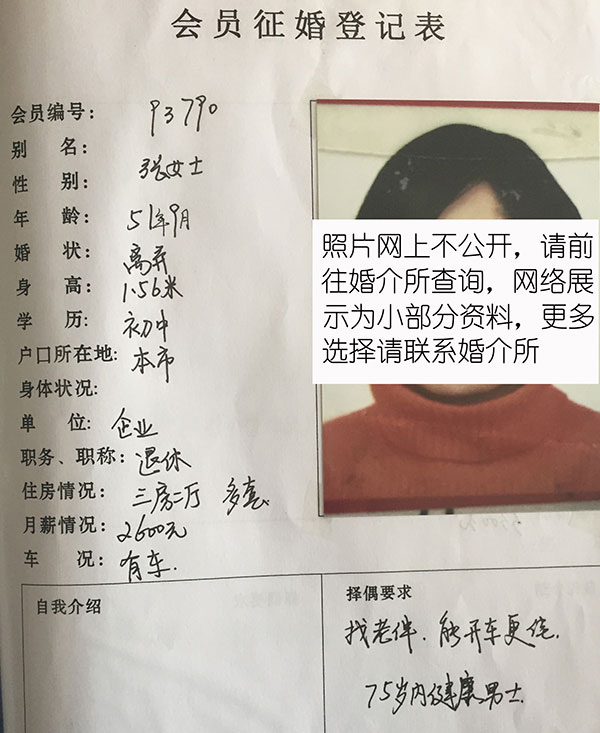 会员征婚登记表
会员编号: 93790
别 名:
性 别: 张女士
年 龄: 51年9月
婚 状: 离异
身 高: 1.56米
学 历: 初中
户口所在地: 本市
身体状况:
单 位: 企业
职务、职称: 退休
住房情况: 三房二厅 多套
月薪情况: 2600元
车 况: 有车.
照片网上不公开，请前
往婚介所查询，网络展
示为小部分资料，更多
选择请联系婚介所
自我介绍
择偶要求
找老伴. 能开车更佳.
75岁内健康男士.